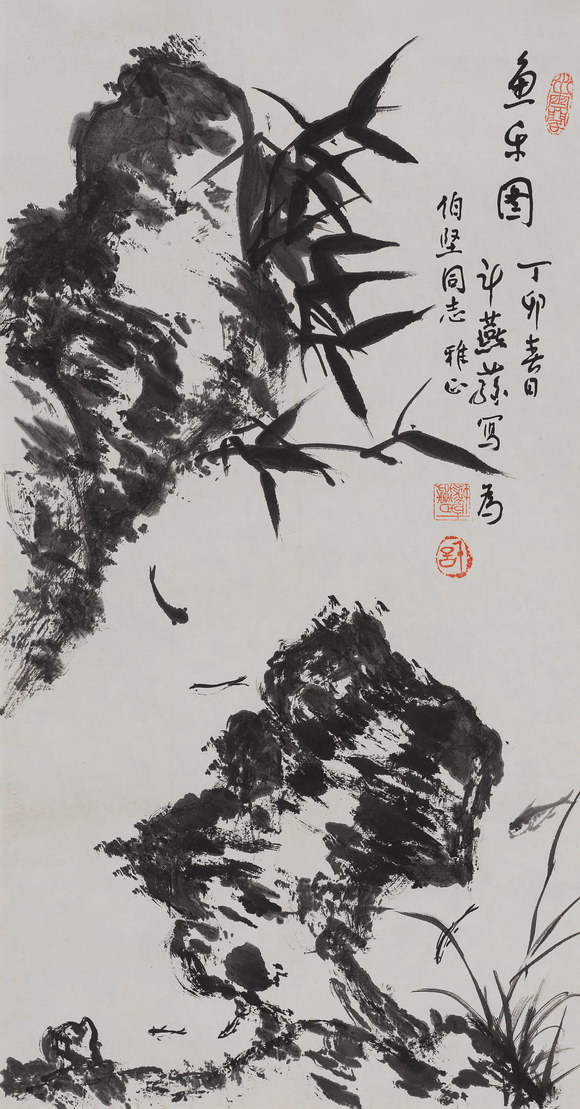 鱼乐图
丁卯春日
计燕蓀写为
伯坚同志雅正